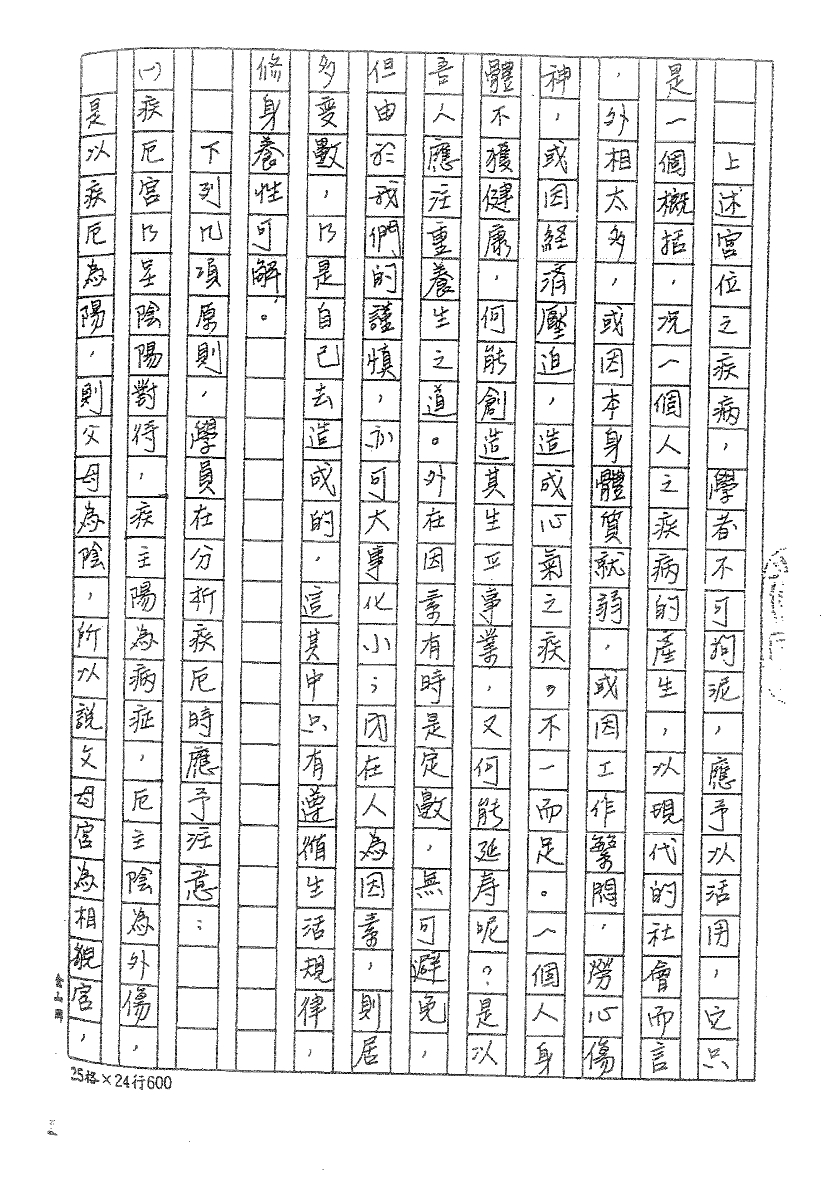 上述宮位之疾病，學者不可狥泥，應予以活用，它只
是一個概括，況一個人之疾病的產生，以現代的社會而言
，外相太多，或因本身體質就弱，或因工作繁悶，勞心傷
神，或因経済壓迫，造成心氣之疾。不一而足。一個人身
體不獲健康，何能創造其生平事業，又何能延寿呢？是以
吾人應注重養生之道。外在因素有時是定數，無可避免，
但由於我們的謹慎，亦可大事化小；內在人為因素，則居
多变數，乃是自己去造成的，這其中只有遵循生活規律，
修身養性可解。
下列几項原則，學員在分析疾厄時應予注意：
㈠疾厄宮乃呈陰陽對待，疾主陽為病症，厄主陰為外傷，
是以疾厄為陽，則父母為陰，所以說父母宮為相貌宮，
25格×24行600